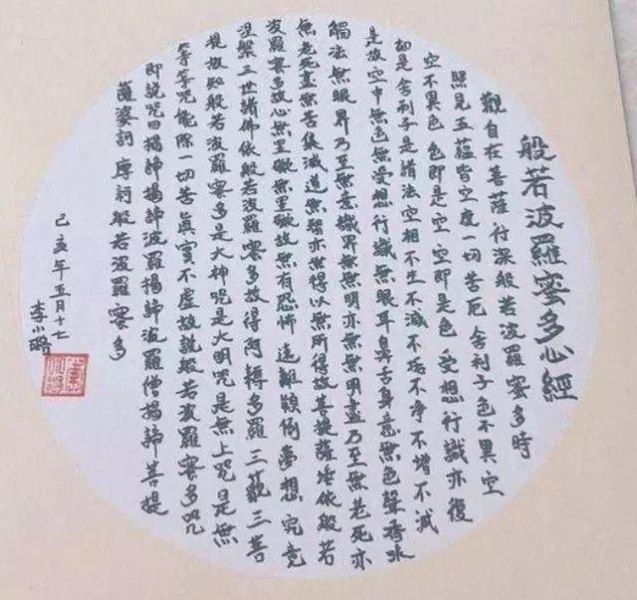 般若波羅蜜多心經
觀自在菩薩行深般若波羅蜜多時
照見五蘊皆空度一切苦厄舍利子色不異空
空不異色色即是空空即是色受想行識亦復
如是舍利子是諸法空相不生不滅不垢不净不增不減
是故空中無色無受想行識無眼耳鼻舌身意無色聲香味
觸法無眼界乃至無意識界無無明亦無無明盡乃至無老死亦
無老死盡無苦集滅道無智亦無得以無所得故菩提薩埵依般若
波羅蜜多故心無罣礙無罣礙故無有恐怖遠離顛倒夢想究竟
涅槃三世諸佛依般若波羅蜜多故得阿耨多羅三藐三菩
提故知般若波羅蜜多是大神咒是大明咒是無上咒是無
等等咒能除一切苦真實不虛故說般若波羅蜜多咒
即說咒曰揭諦揭諦波羅揭諦波羅僧揭諦菩提
薩婆訶摩訶般若波羅蜜多
己亥年五月十七
李小璐